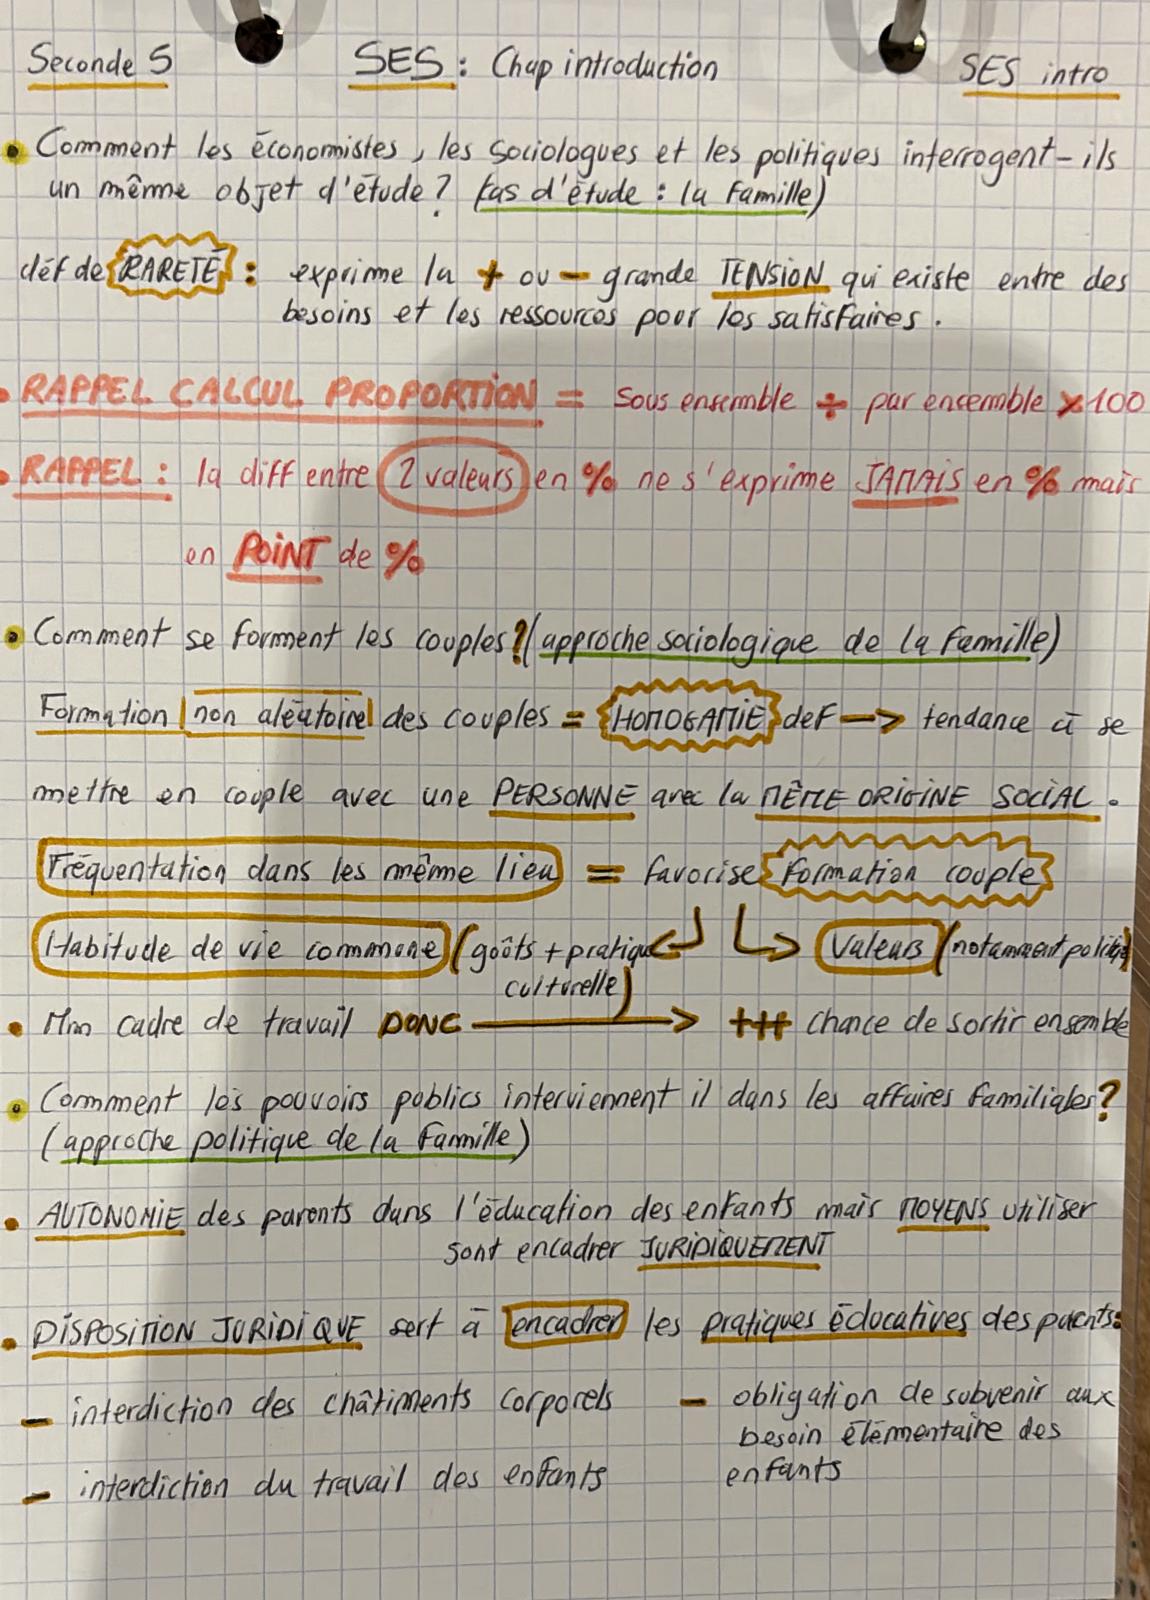 Seconde 5
SES : Chap introduction
SES intro
Comment les économistes, les sociologues et les politiques interrogent-ils
un même objet d'étude? (cas d'étude : la famille)
déf de RARETÉ : exprime la + ou - grande TENSION qui existe entre des
besoins et les ressources pour les satisfaires.
RAPPEL CALCUL PROPORTION = Sous ensemble ÷ par encemble x100
RAPPEL : la diff entre 2 valeurs en % ne s'exprime JAMAIS en % mais
en POINT de %
Comment se forment les couples? (approche sociologique de la famille)
Formation non aléatoire des couples = HOMOGAMIE def → tendance à se
mettre en couple avec une PERSONNE avec la MÊME ORIGINE SOCIAL.
Fréquentation dans les même lieu = favorise formation couple
Habitude de vie commune (goûts + pratique Valeurs (notamment politiq)
culturelle)
Mm cadre de travail DONC → +++ chance de sortir ensemble
Comment les pouvoirs publics interviennent il dans les affaires familiales?
(approche politique de la famille)
AUTONOMIE des parents dans l'éducation des enfants mais MOYENS utiliser
sont encadrer JURIDIQUEMENT
DISPOSITION JURIDIQUE sert à encadrer les pratiques éducatives des parents:
- interdiction des châtiments corporels
- interdiction du travail des enfants
- obligation de subvenir aux
besoin élémentaire des
enfants